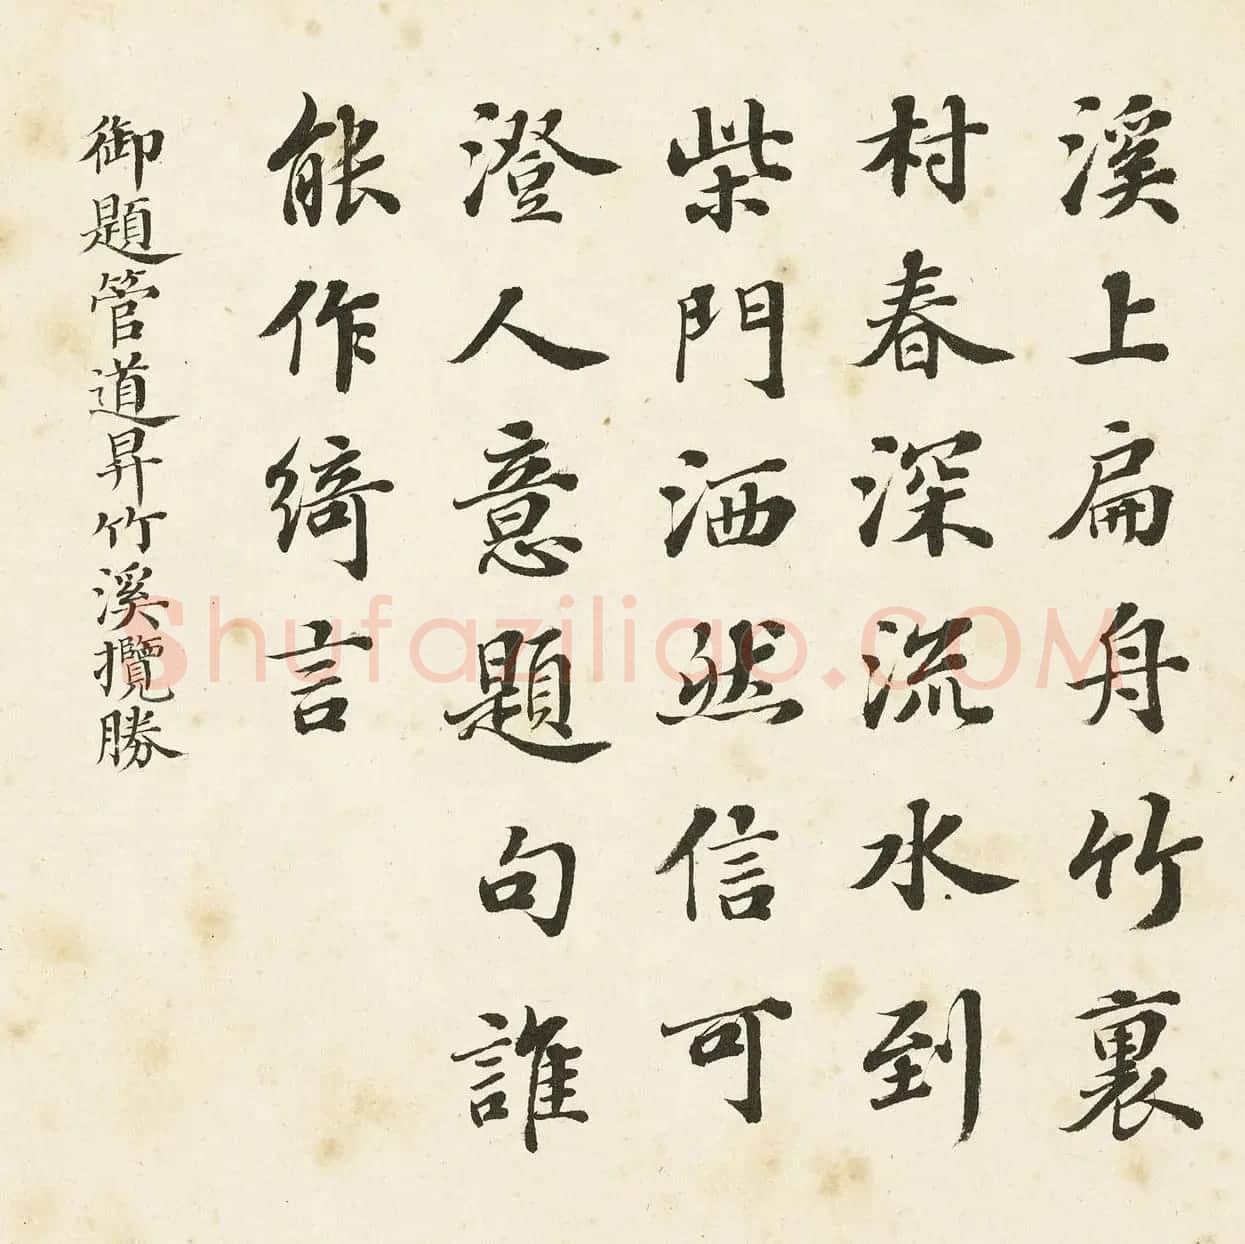 溪上扁舟竹裏
村春深流水到
柴門洒然信可
澄人意題句誰
能作綺言
御題管道昇竹溪攬勝
Shufaziliao.COM